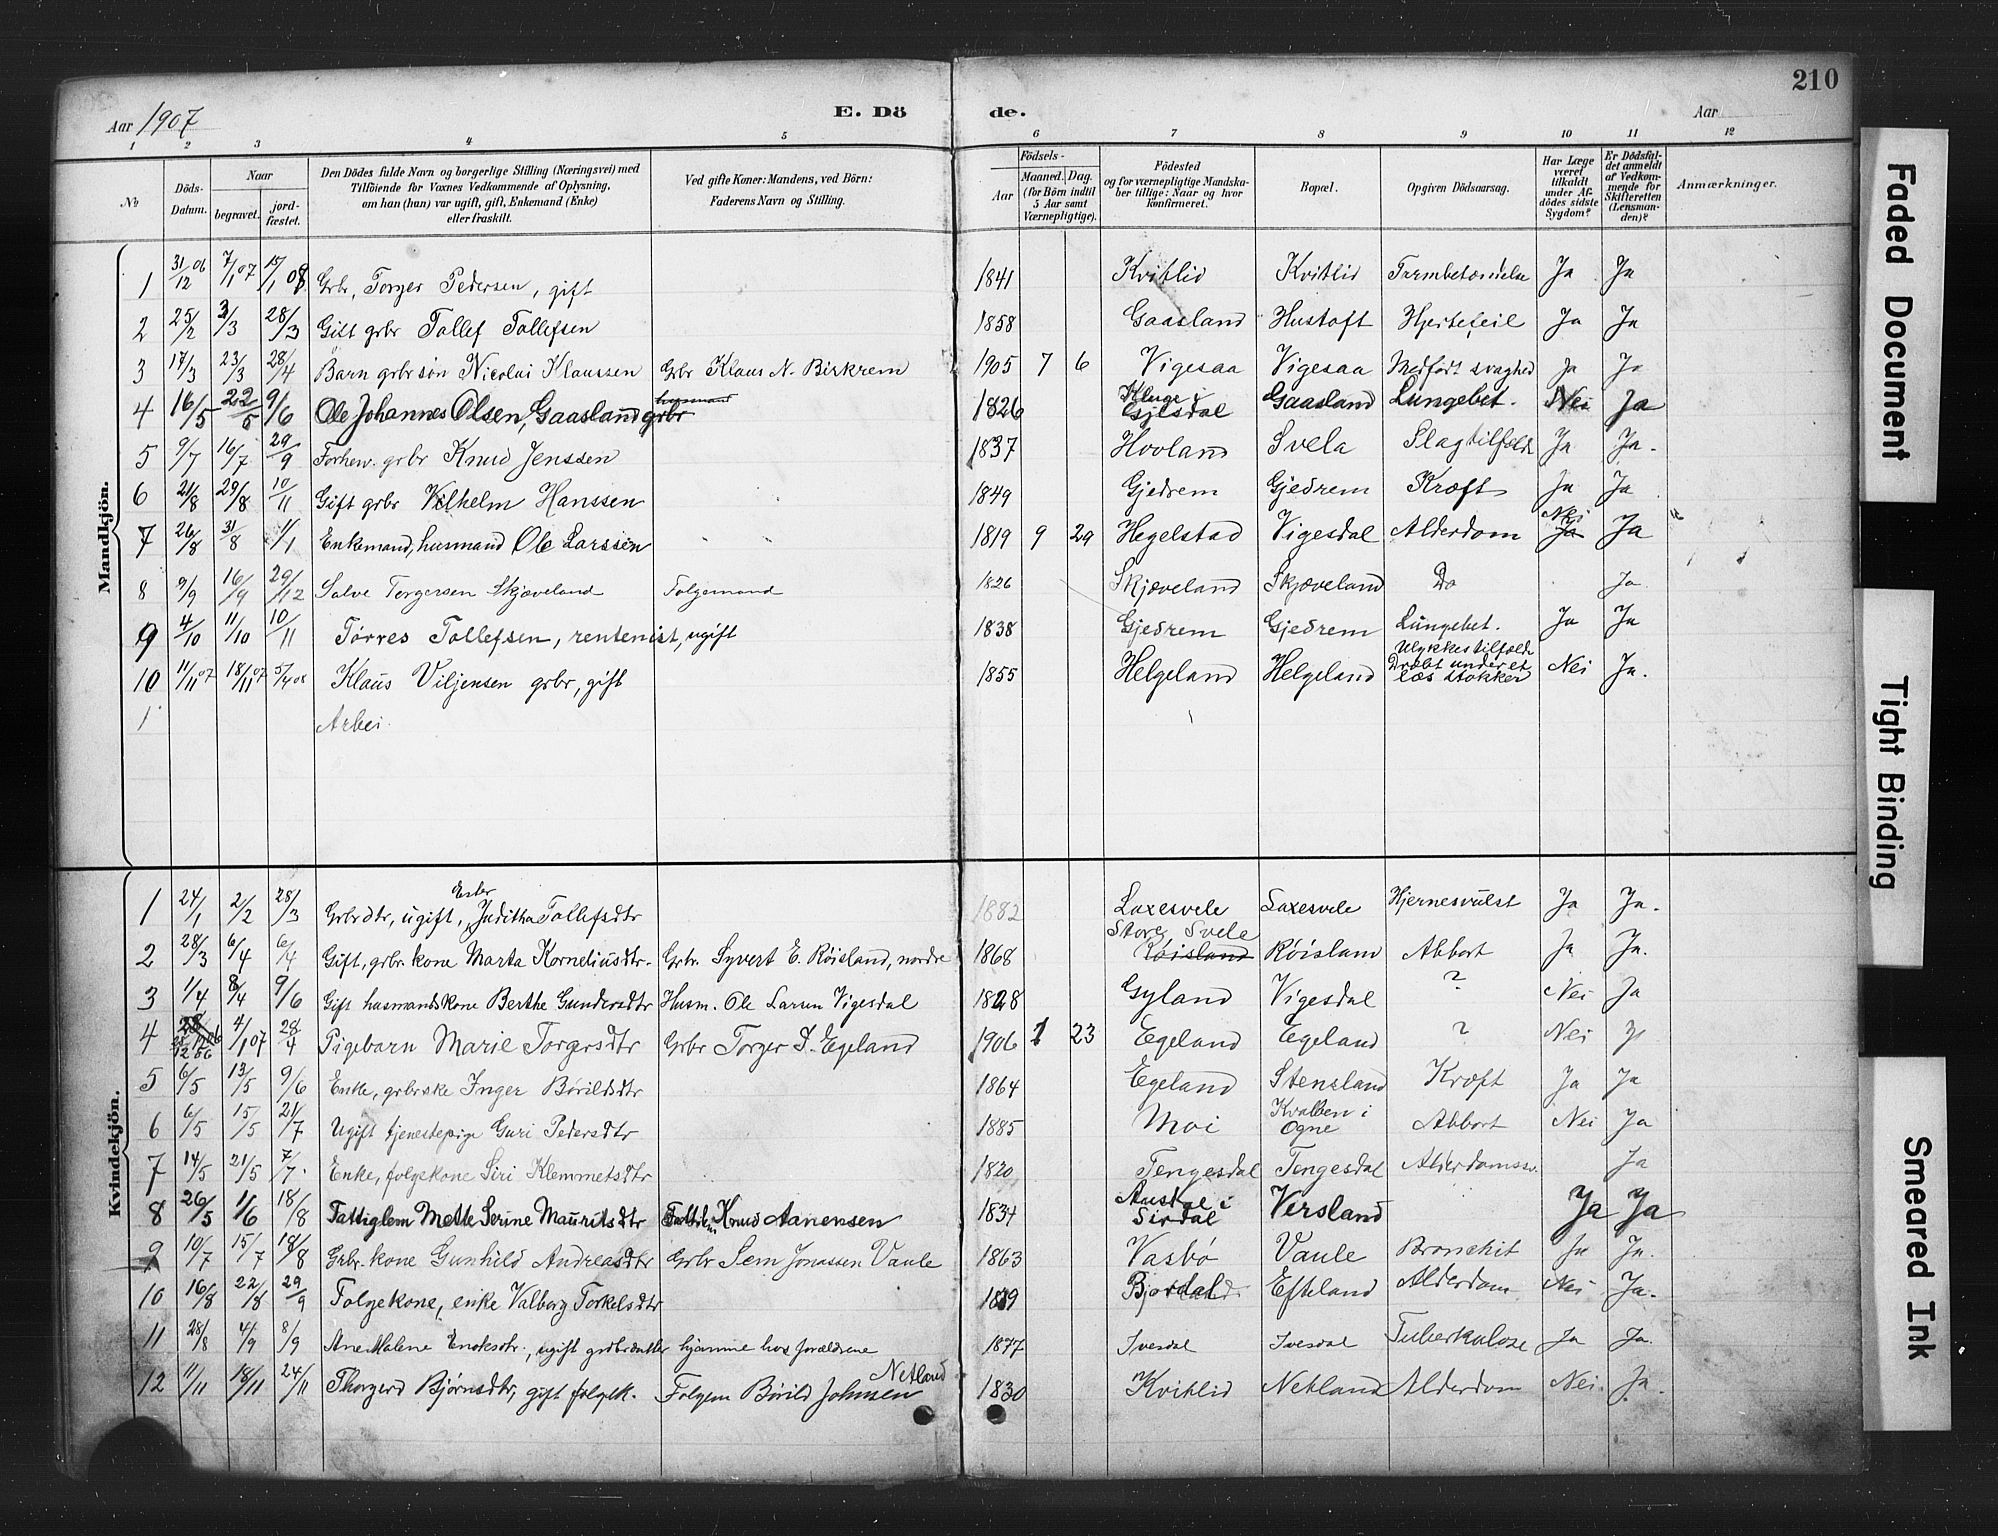 210
Aar 1907 E. Dö de. Aar
1 2 3 4 5 6 7 8 9 10 11 12
No Döds-Datum. Naar begravet. jordfæstet. Den Dödes fulde Navn og borgerlige Stilling (Næringsvei) med Tilföiende for Voxnes Vedkommende af Oplysning, om han (hun) var ugift, gift, Enkemand (Enke) eller fraskilt. Ved gifte Koner: Mandens, ved Börn: Faderens Navn og Stilling. Födsels- Aar Maaned. Dag. (for Börn indtil 5 Aar samt Værnepligtige). Födested og for værnepligtige Mandskaber tillige: Naar og hvor konfirmeret. Bopæl. Opgiven Dödsaarsag. Har Læge været tilkaldt under Afdödes sidste Sygdom? Er Dödsfaldet anmeldt af Vedkommende for Skifteretten (Lensmanden)? Anmærkninger.
Mandkjön.
1 31/12 06 7/1 07 15/1 08 Grbr, Torger Pedersen, gift 1841 Kvitlid Kvitlid Tarmbetændelse Ja Ja
2 25/2 3/3 28/3 Gift grbr Tollef Tollefsen 1858 Gaasland Hustoft Hjertefeil Ja Ja
3 17/3 23/3 28/4 Barn grbr søn Nicolai Klaussen Grbr Klaus N. Birkrem 1905 7 6 Vigesaa Vigesaa Medfødt svaghed Ja Ja
4 16/5 22/5 9/6 Ole Johannes Olsen, Gaasland husmand grbr 1826 Kluge i Gjesdal Gaasland Lungebet. Nei Ja
5 9/7 16/7 29/9 Forhev. grbr Knud Jenssen 1837 Hovland Svela Slagtilfælde Ja Ja.
6 21/8 29/8 10/11 Gift grbr Vilhelm Hanssen 1849 Gjedrem Gjedrem Kræft Ja Ja
7 26/8 31/8 1/1 Enkemand, husmand Ole Larssen 1819 9 29 Hegelstad Vigesdal Alderdom Nei Ja Ja
8 9/9 16/9 29/12 Salve Torgersen Skjæveland Folgemand 1826 Skjæveland Skjæveland Do Ja
9 4/10 11/10 10/11 Tørres Tollefsen, rentenist, ugift 1838 Gjedrem Gjedrem Lungebet. Ja Ja
10 11/11 07 18/11 07 5/4 08 Klaus Viljensen grbr, gift 1855 Helgeland Helgeland Ulykkestilfælde Dræbt under et læs stokker Nei Ja.
1 Arbei
Kvindekjön.
1 24/1 2/2 28/3 Grbrdtr, ugift, Ester Juditha Tollefsdtr 1882 Laxesvele Laxesvele Hjernesvulst Ja Ja.
2 28/3 6/4 6/4 Gift, grbr. kone Marta Korneliusdtr. Grbr. Syvert E. Røisland, nordre 1868 Store Svele Røisland Røisland Abbort Ja Ja.
3 1/4 8/4 9/6 Gift husmandskone Berthe Gundersdtr Husm. Ole Larsen Vigesdal 1828 Gyland Vigesdal ? Nei Ja
4 4/1 07 28/4 Pigebarn Marie Torgersdtr Grbr Torger I. Egeland 1906 1 23 Egeland Egeland ? Nei Ja
5 6/5 13/5 9/6 Enke, grbrske Inger Børildsdtr 1864 Egeland Stensland Kræft Ja Ja
6 6/5 15/5 21/7 Ugift tjenestepige Guri Pedersdtr 1885 Moi Kvalben i Ogne Abbort Nei Ja
7 14/5 21/5 7/7 Enke, folgekone Siri Klemmetsdtr 1820 Tengesdal Tengesdal Alderdomssv. Ja
8 26/5 1/6 18/8 Fattiglem Mette Serine Mauritsdtr Fattiglem Knud Aanensen 1834 Ausdal i Sirdal Versland Ja Ja
9 10/7 15/7 18/8 Grbr. kone Gunhild Andreasdtr Grbr Sem Jonassen Vaule 1863 Vasbø Vaule Bronchit Ja Ja.
10 16/8 22/8 29/9 Folgekone, enke Valborg Torkelsdtr Bjordal Efteland Alderdom Nei Ja.
11 28/8 4/9 8/9 Ane Malene Enoksdtr., ugift grdbrdatter hjemme hos forældrene 1877 Ivesdal Ivesdal Tuberkulose Ja Ja.
12 11/11 18/11 24/11 Thorgerd Bjørnsdtr, gift folgek. Folgem Børild Johnsen Netland 1830 Kvitlid Netland Alderdom Nei. Ja.
Faded Document
Tight Binding
Smeared Ink